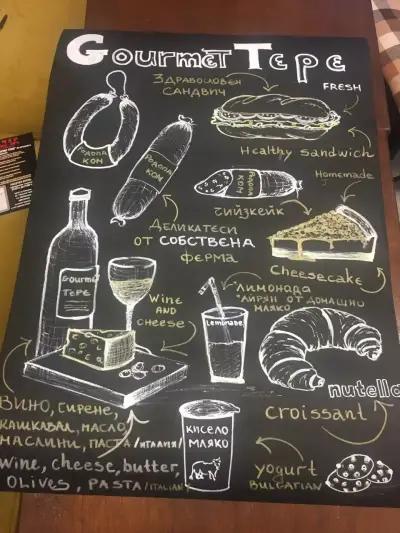 Gourmet Tepe
Здравословен
сандвич
FRESH
Healthy sandwich
Homemade
Родопа
ком
Родопа
ком
Родопа
ком
чийзкейк
Деликатеси
от собствена
ферма
Cheesecake
Gourmet
Tepe
Wine
and
cheese
лимонада
айрян от домашно
мляко
Lemonade
nutella
croissant
Вино, сирене,
кашкавал, масло
маслини, паста /италия/
wine, cheese, butter,
olives, pasta /italian/
кисело
мляко
yogurt
BULGARIAN